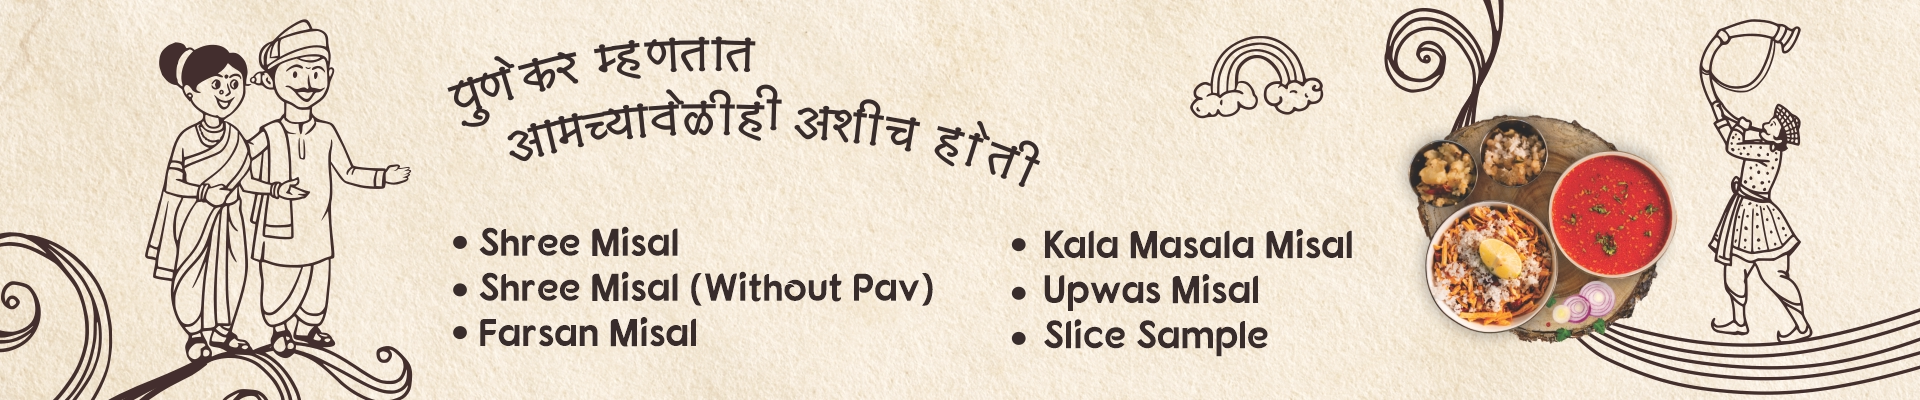 पुणेकर म्हणतात
आमच्यावेळीही अशीच होती
• Shree Misal
• Shree Misal (Without Pav)
• Farsan Misal
• Kala Masala Misal
• Upwas Misal
• Slice Sample